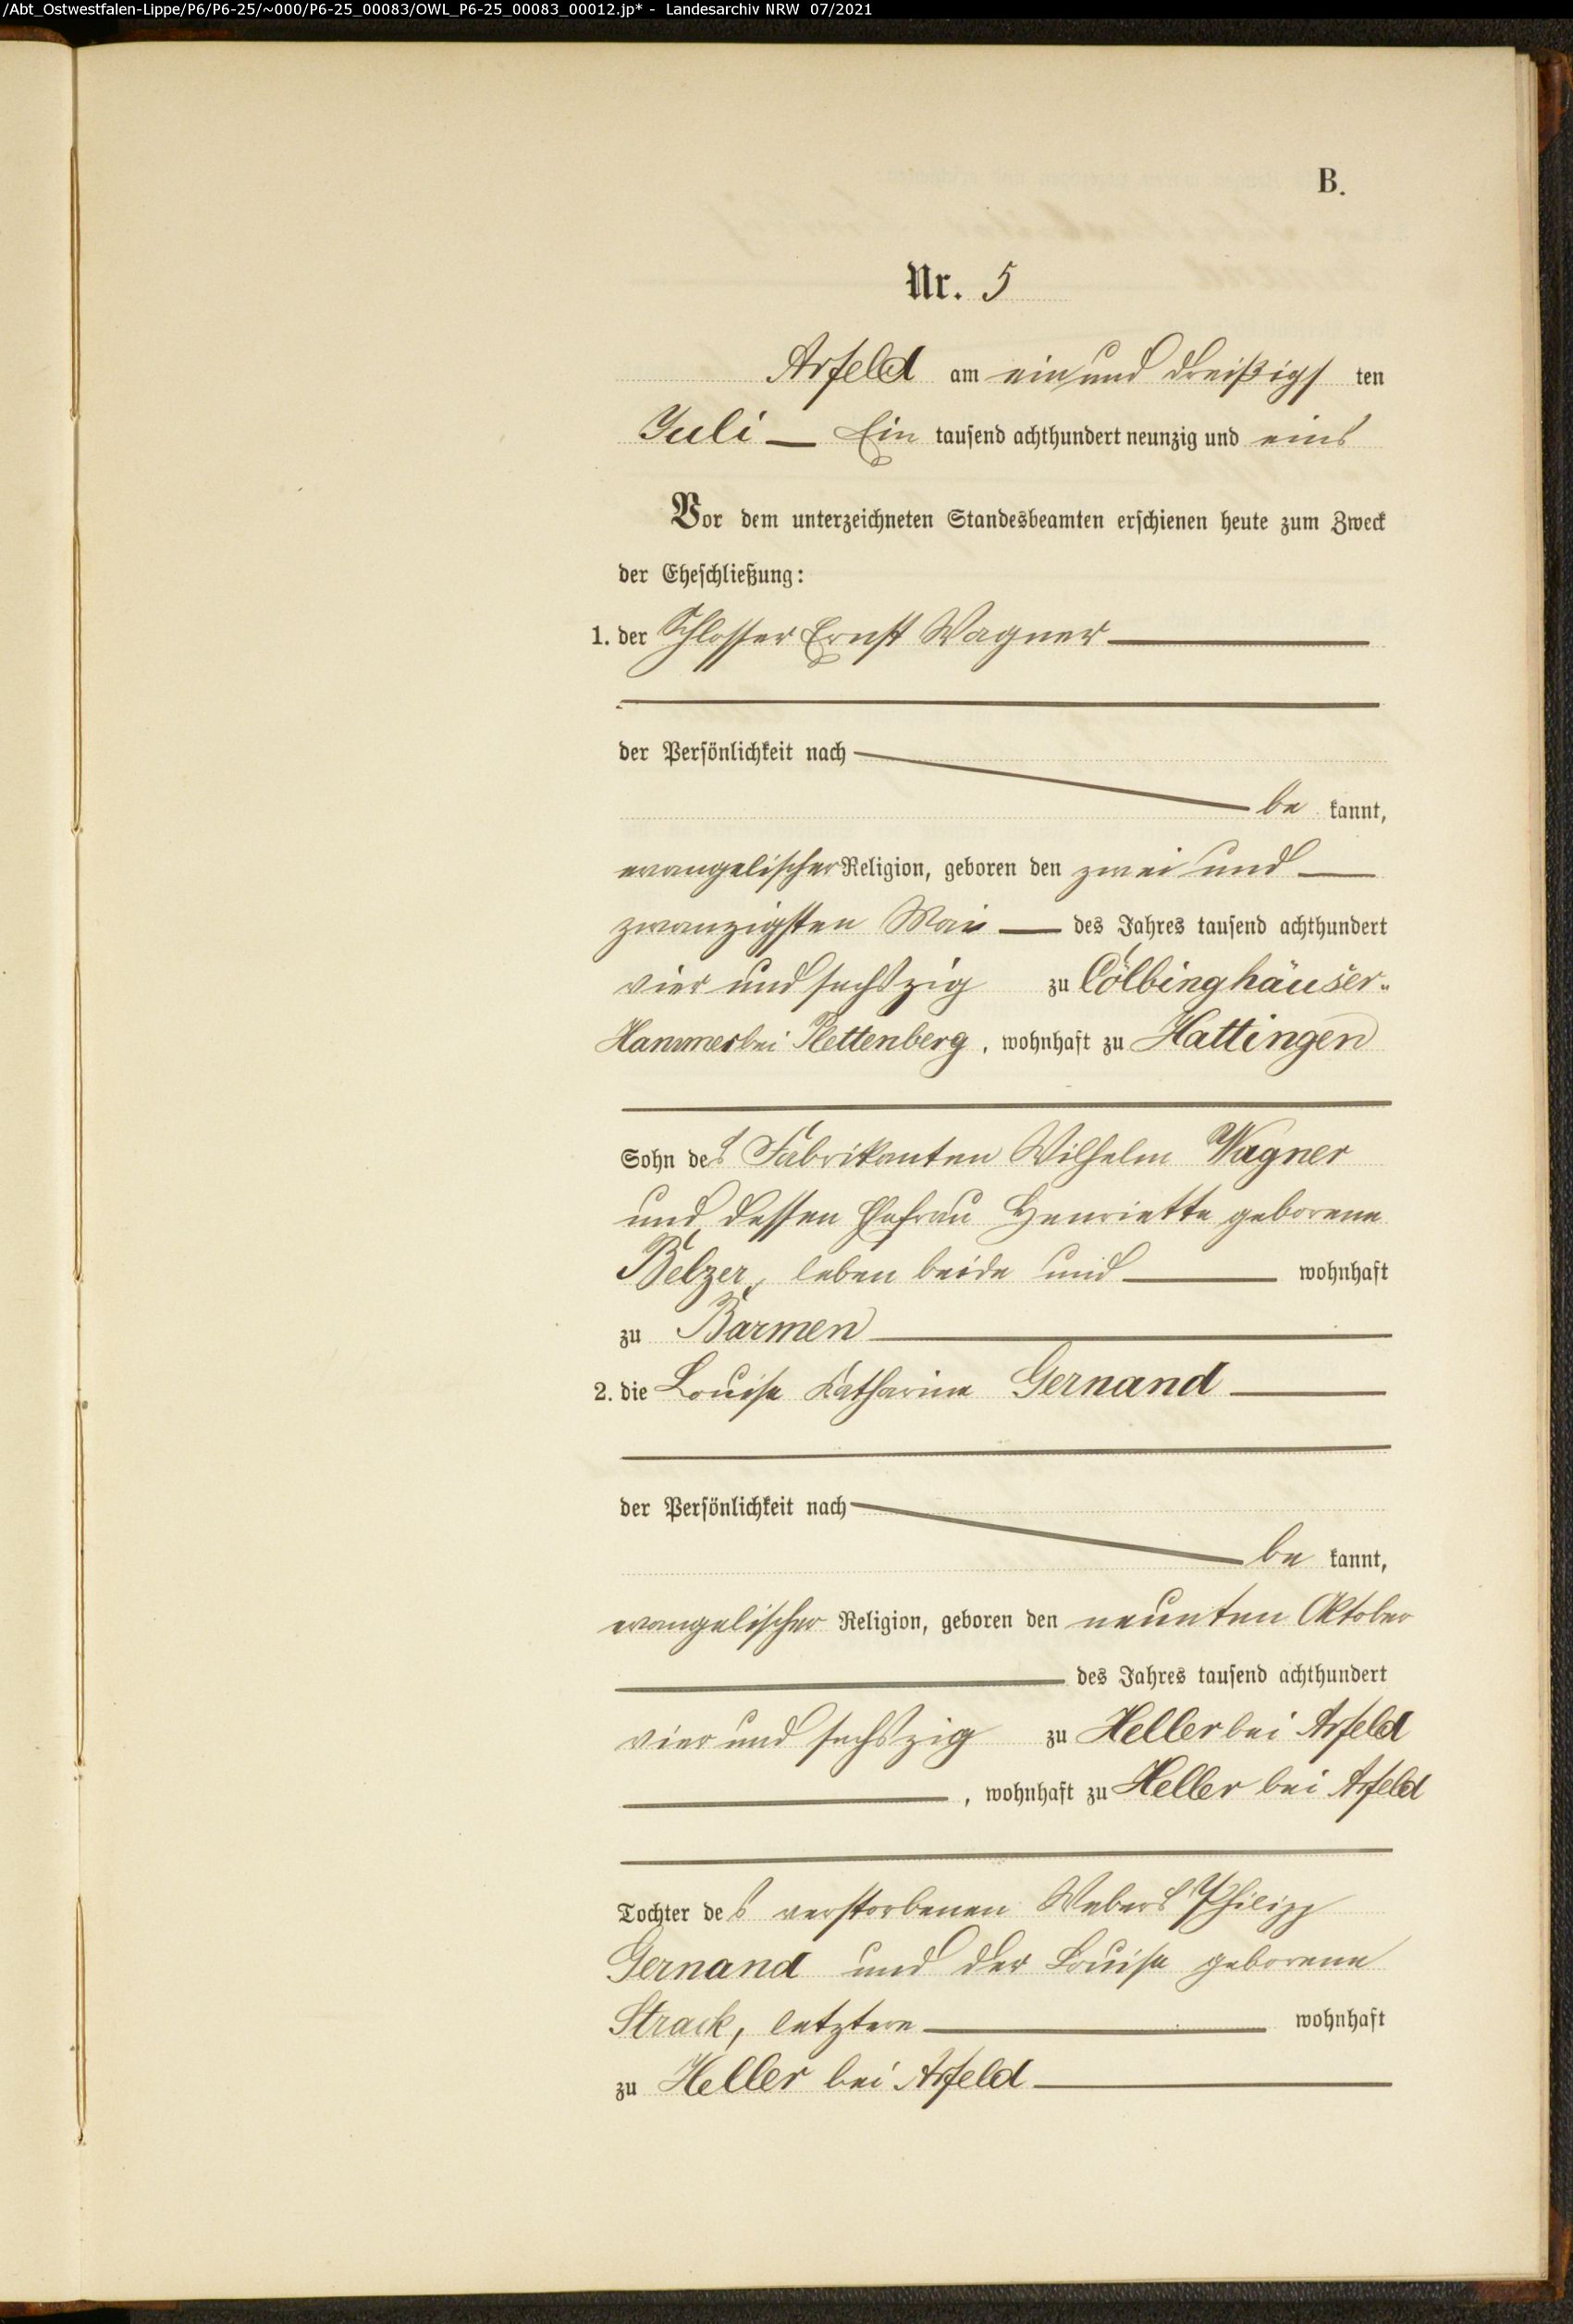 /Abt_Ostwestfalen-Lippe/P6/P6-25/~000/P6-25_00083/OWL_P6-25_00083_00012.jp* - Landesarchiv NRW 07/2021
B.
Nr. 5
Arfeld am ein und dreißigsten
Juli — Ein tausend achthundert neunzig und eins
Vor dem unterzeichneten Standesbeamten erschienen heute zum Zweck
der Eheschließung:
1. der Schlosser Ernst Wagner
der Persönlichkeit nach
be kannt,
evangelischer Religion, geboren den zwei und
zwanzigsten Mai — des Jahres tausend achthundert
vier und sechszig zu Cölbinghäuser-
Hammer bei Plettenberg, wohnhaft zu Hattingen
Sohn des Fabrikanten Wilhelm Wagner
und dessen Ehefrau Henriette geborene
Belzer, leben beide und wohnhaft
zu Barmen
2. die Louise Katharine Gernand
der Persönlichkeit nach
be kannt,
evangelischer Religion, geboren den neunten Oktober
des Jahres tausend achthundert
vier und sechszig zu Heller bei Arfeld
, wohnhaft zu Heller bei Arfeld
Tochter des verstorbenen Webers Philipp
Gernand und der Louise geborene
Strack, letztere wohnhaft
zu Heller bei Arfeld